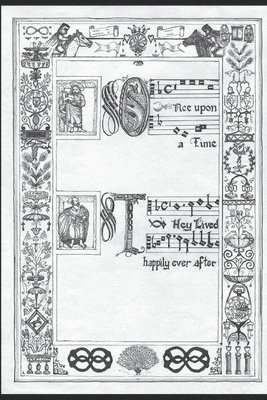 ONce upon
a Time
THey Lived
happily ever after